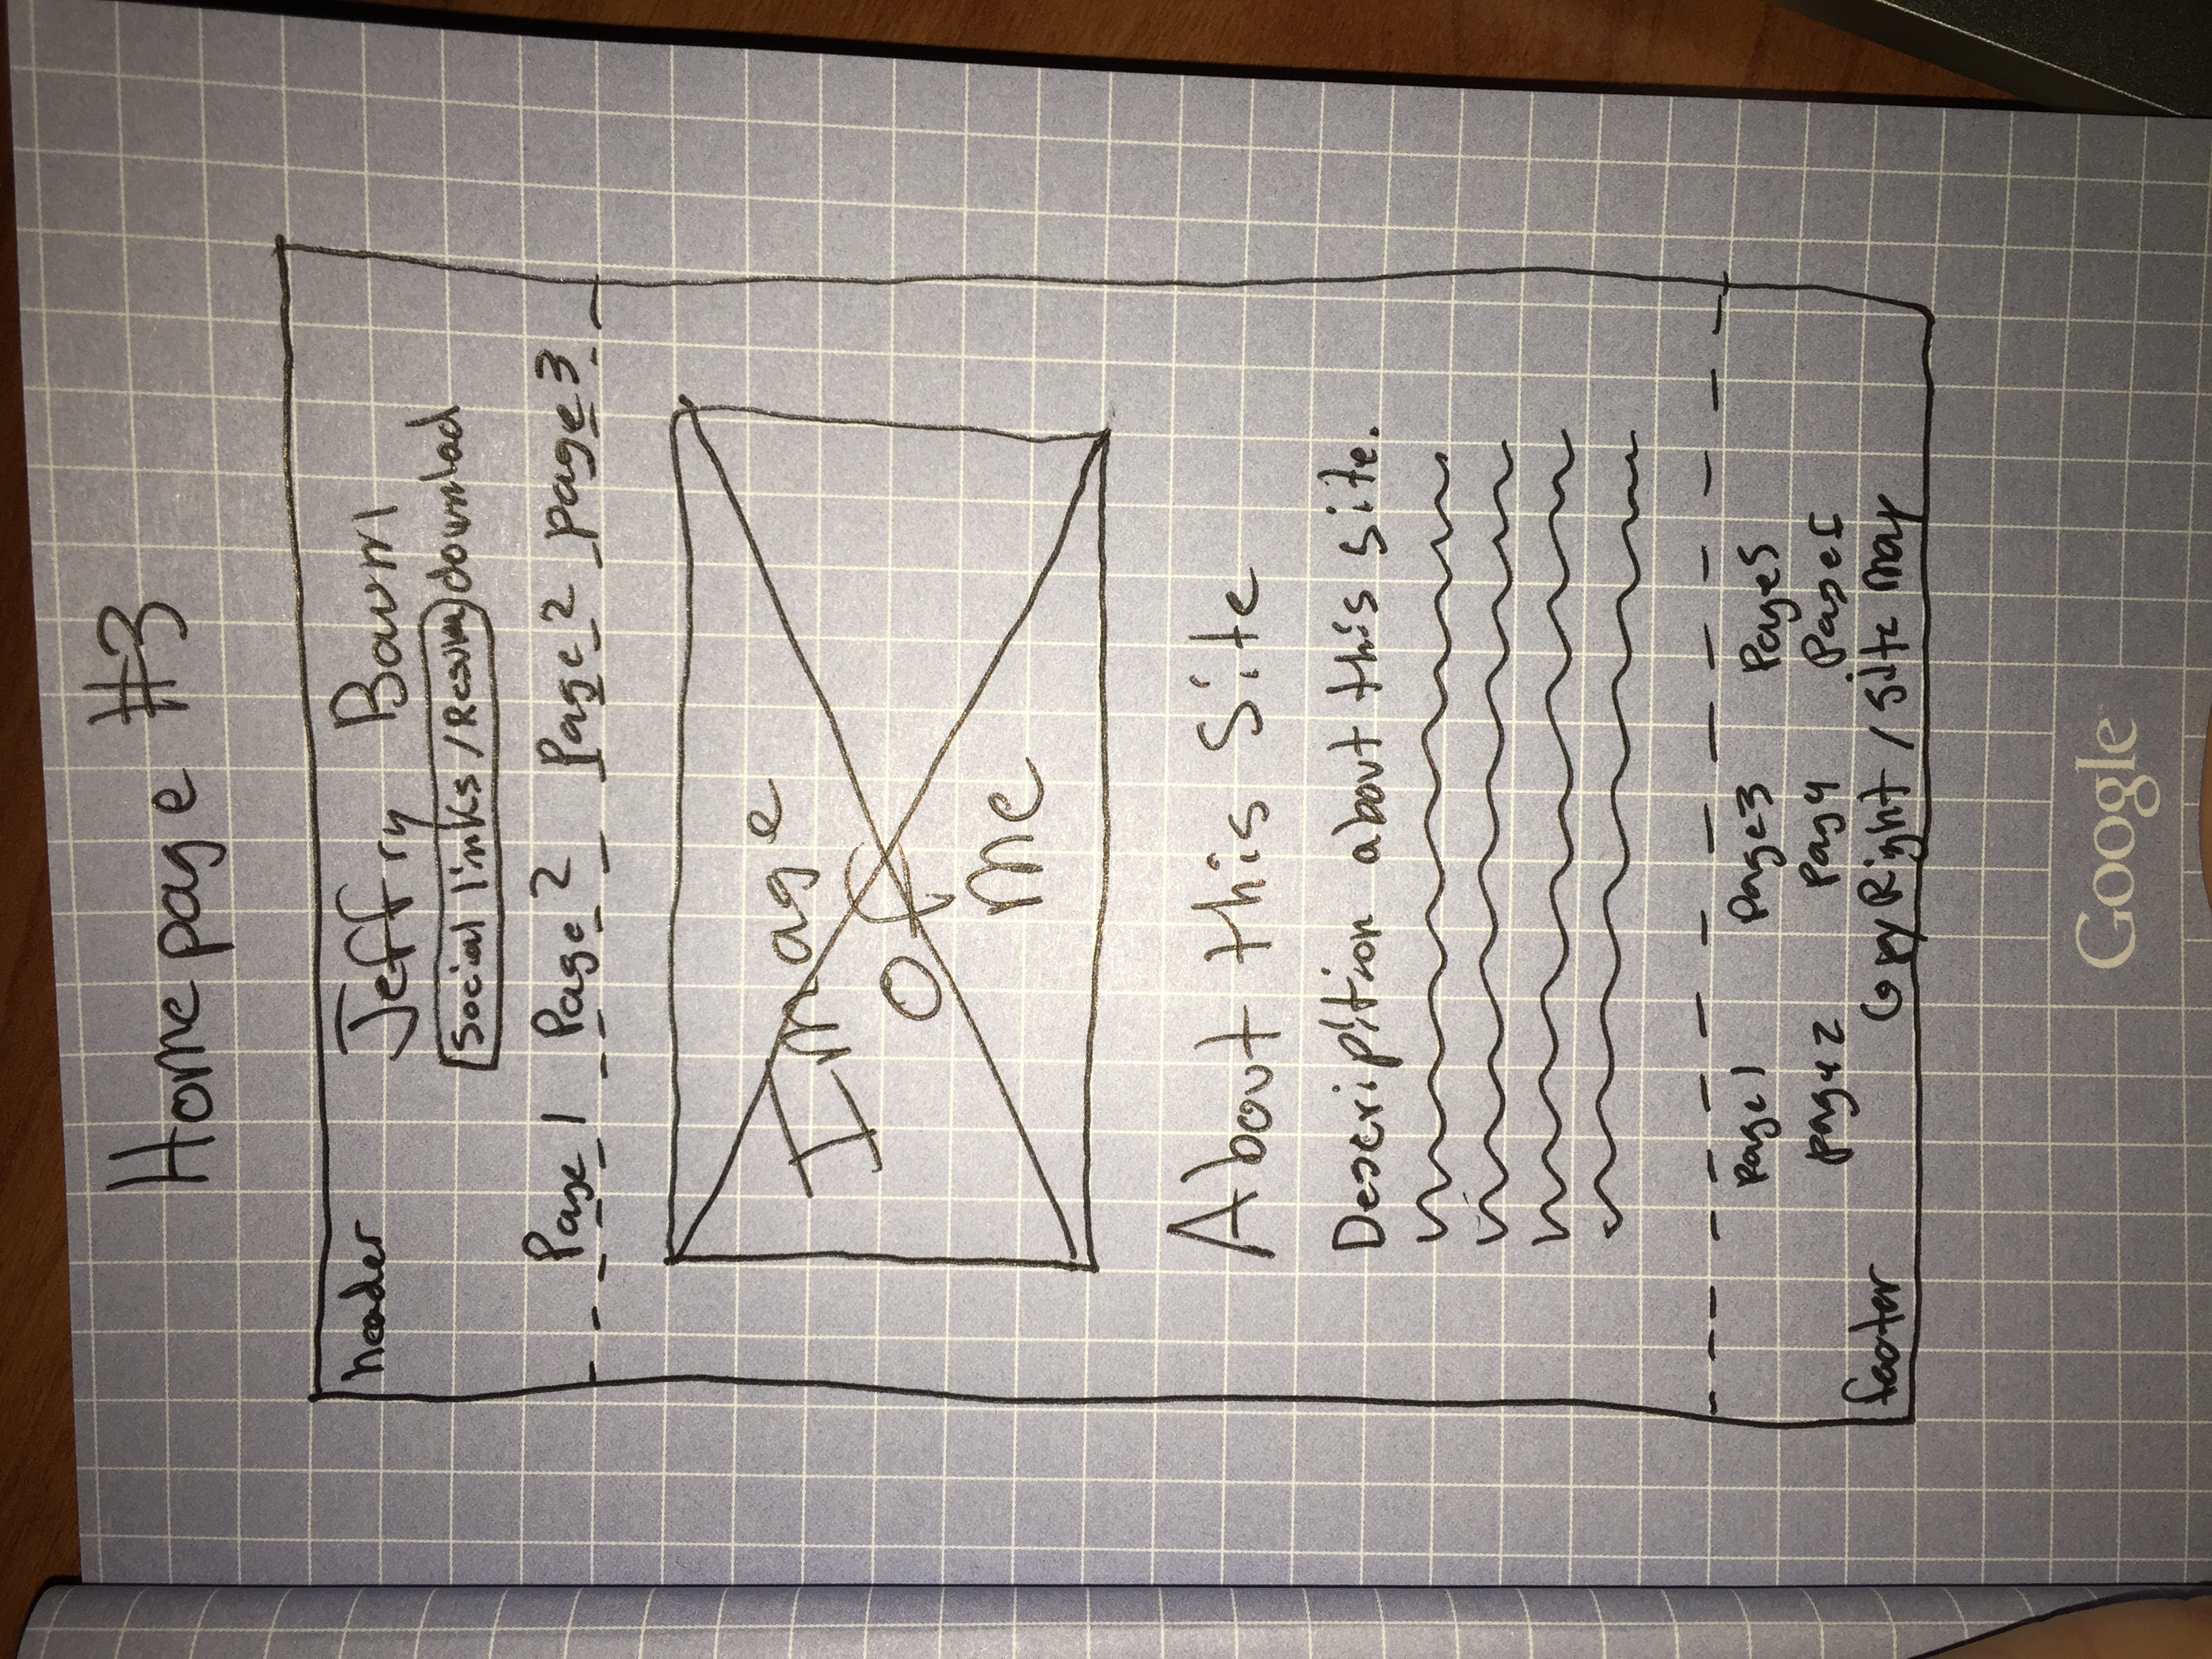 Homepage #3
header Jeffry Baum
Social links / Resume download
Page 1 Page 2 Page 2 page 3
Image
of
me
About this Site
Descripition about this site.
Page 1 Page3 Page5
page 2 Pag4
footer CopyRight / Site map
Google